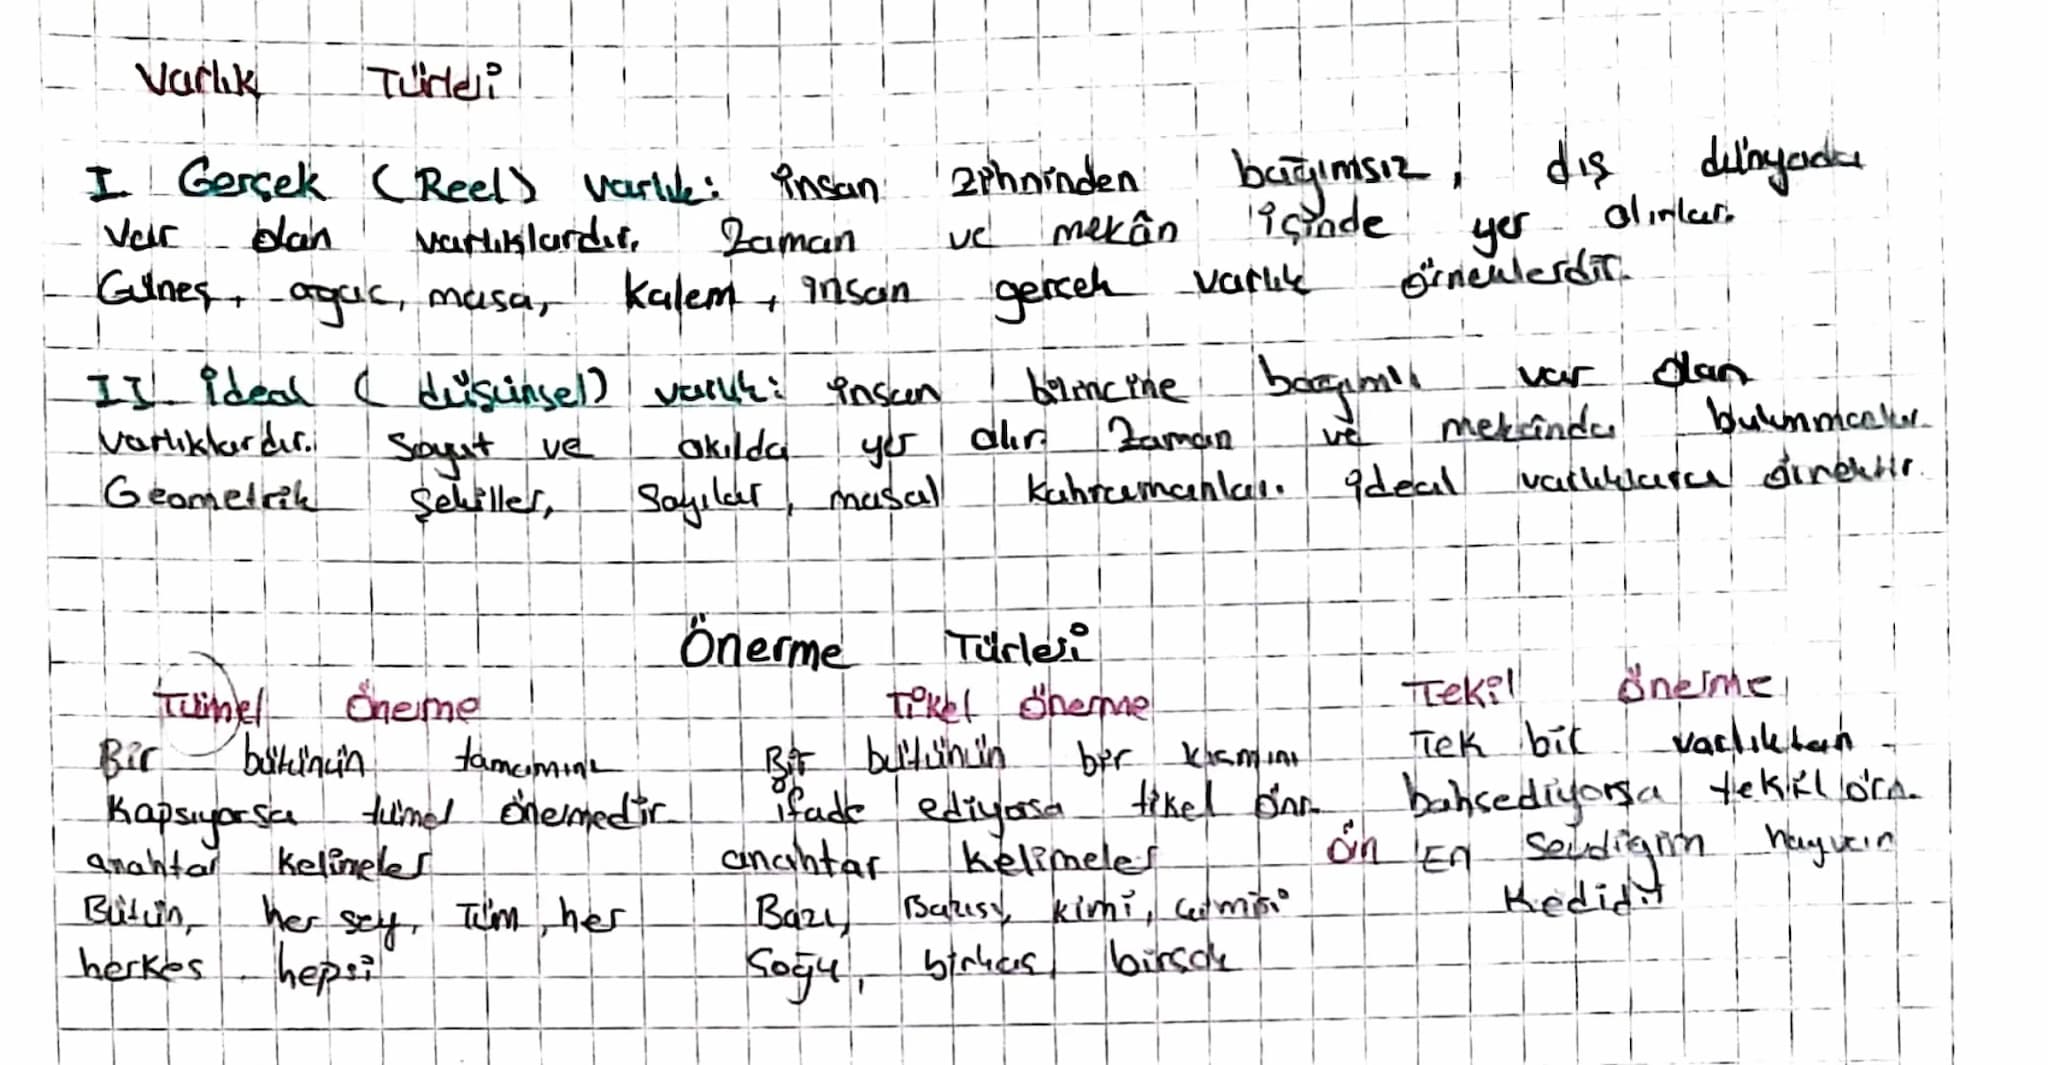 Varlık Türleri
I Gerçek (Reel) varlık: insan zihninden bağımsız, dış dünyada
var olan varlıklardır. Zaman ve mekân içinde yer alırlar.
Güneş, agac, masa, kalem, insan gercek varlık örneklerdir.
II ideal (düşünsel) varlık: insan bilincine bagımlı var olan
varlıklardır. Soyut ve akılda yer alır. Zaman ve mekânda bulunmazlar.
Geometrik şekiller, sayılar, masal kahramanları ideal varlıklara örnektir.
Önerme Türleri
Tümel Önerme
Bir bütünün tamamını
kapsıyorsa tümel önermedir
anahtar kelimeler
Bütün, her sey, Tüm, her
herkes hepsi
Tikel Önerme
Bir bütünün bir kısmını
ifade ediyosa tikel önr.
anahtar kelimeler
Bazı, Bazısı, kimi, kimisi
Çoğu, birkaç, birçok
Tekil Önerme
Tek bir varlıktan
bahsediyorsa tekil örn.
Ön En sevdigim hayvan
kedidir